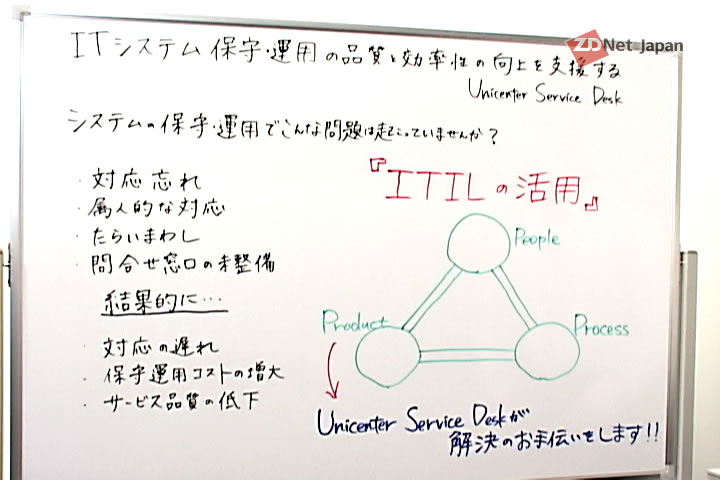 ZDNet Japan
ITシステム保守・運用の品質と効率性の向上を支援する
Unicenter Service Desk
システムの保守・運用でこんな問題は起こっていませんか?
・対応忘れ
・属人的な対応
・たらいまわし
・問合せ窓口の未整備
結果的に…
・対応の遅れ
・保守運用コストの増大
・サービス品質の低下
『ITILの活用』
People
Product
Process
Unicenter Service Deskが
解決のお手伝いをします!!